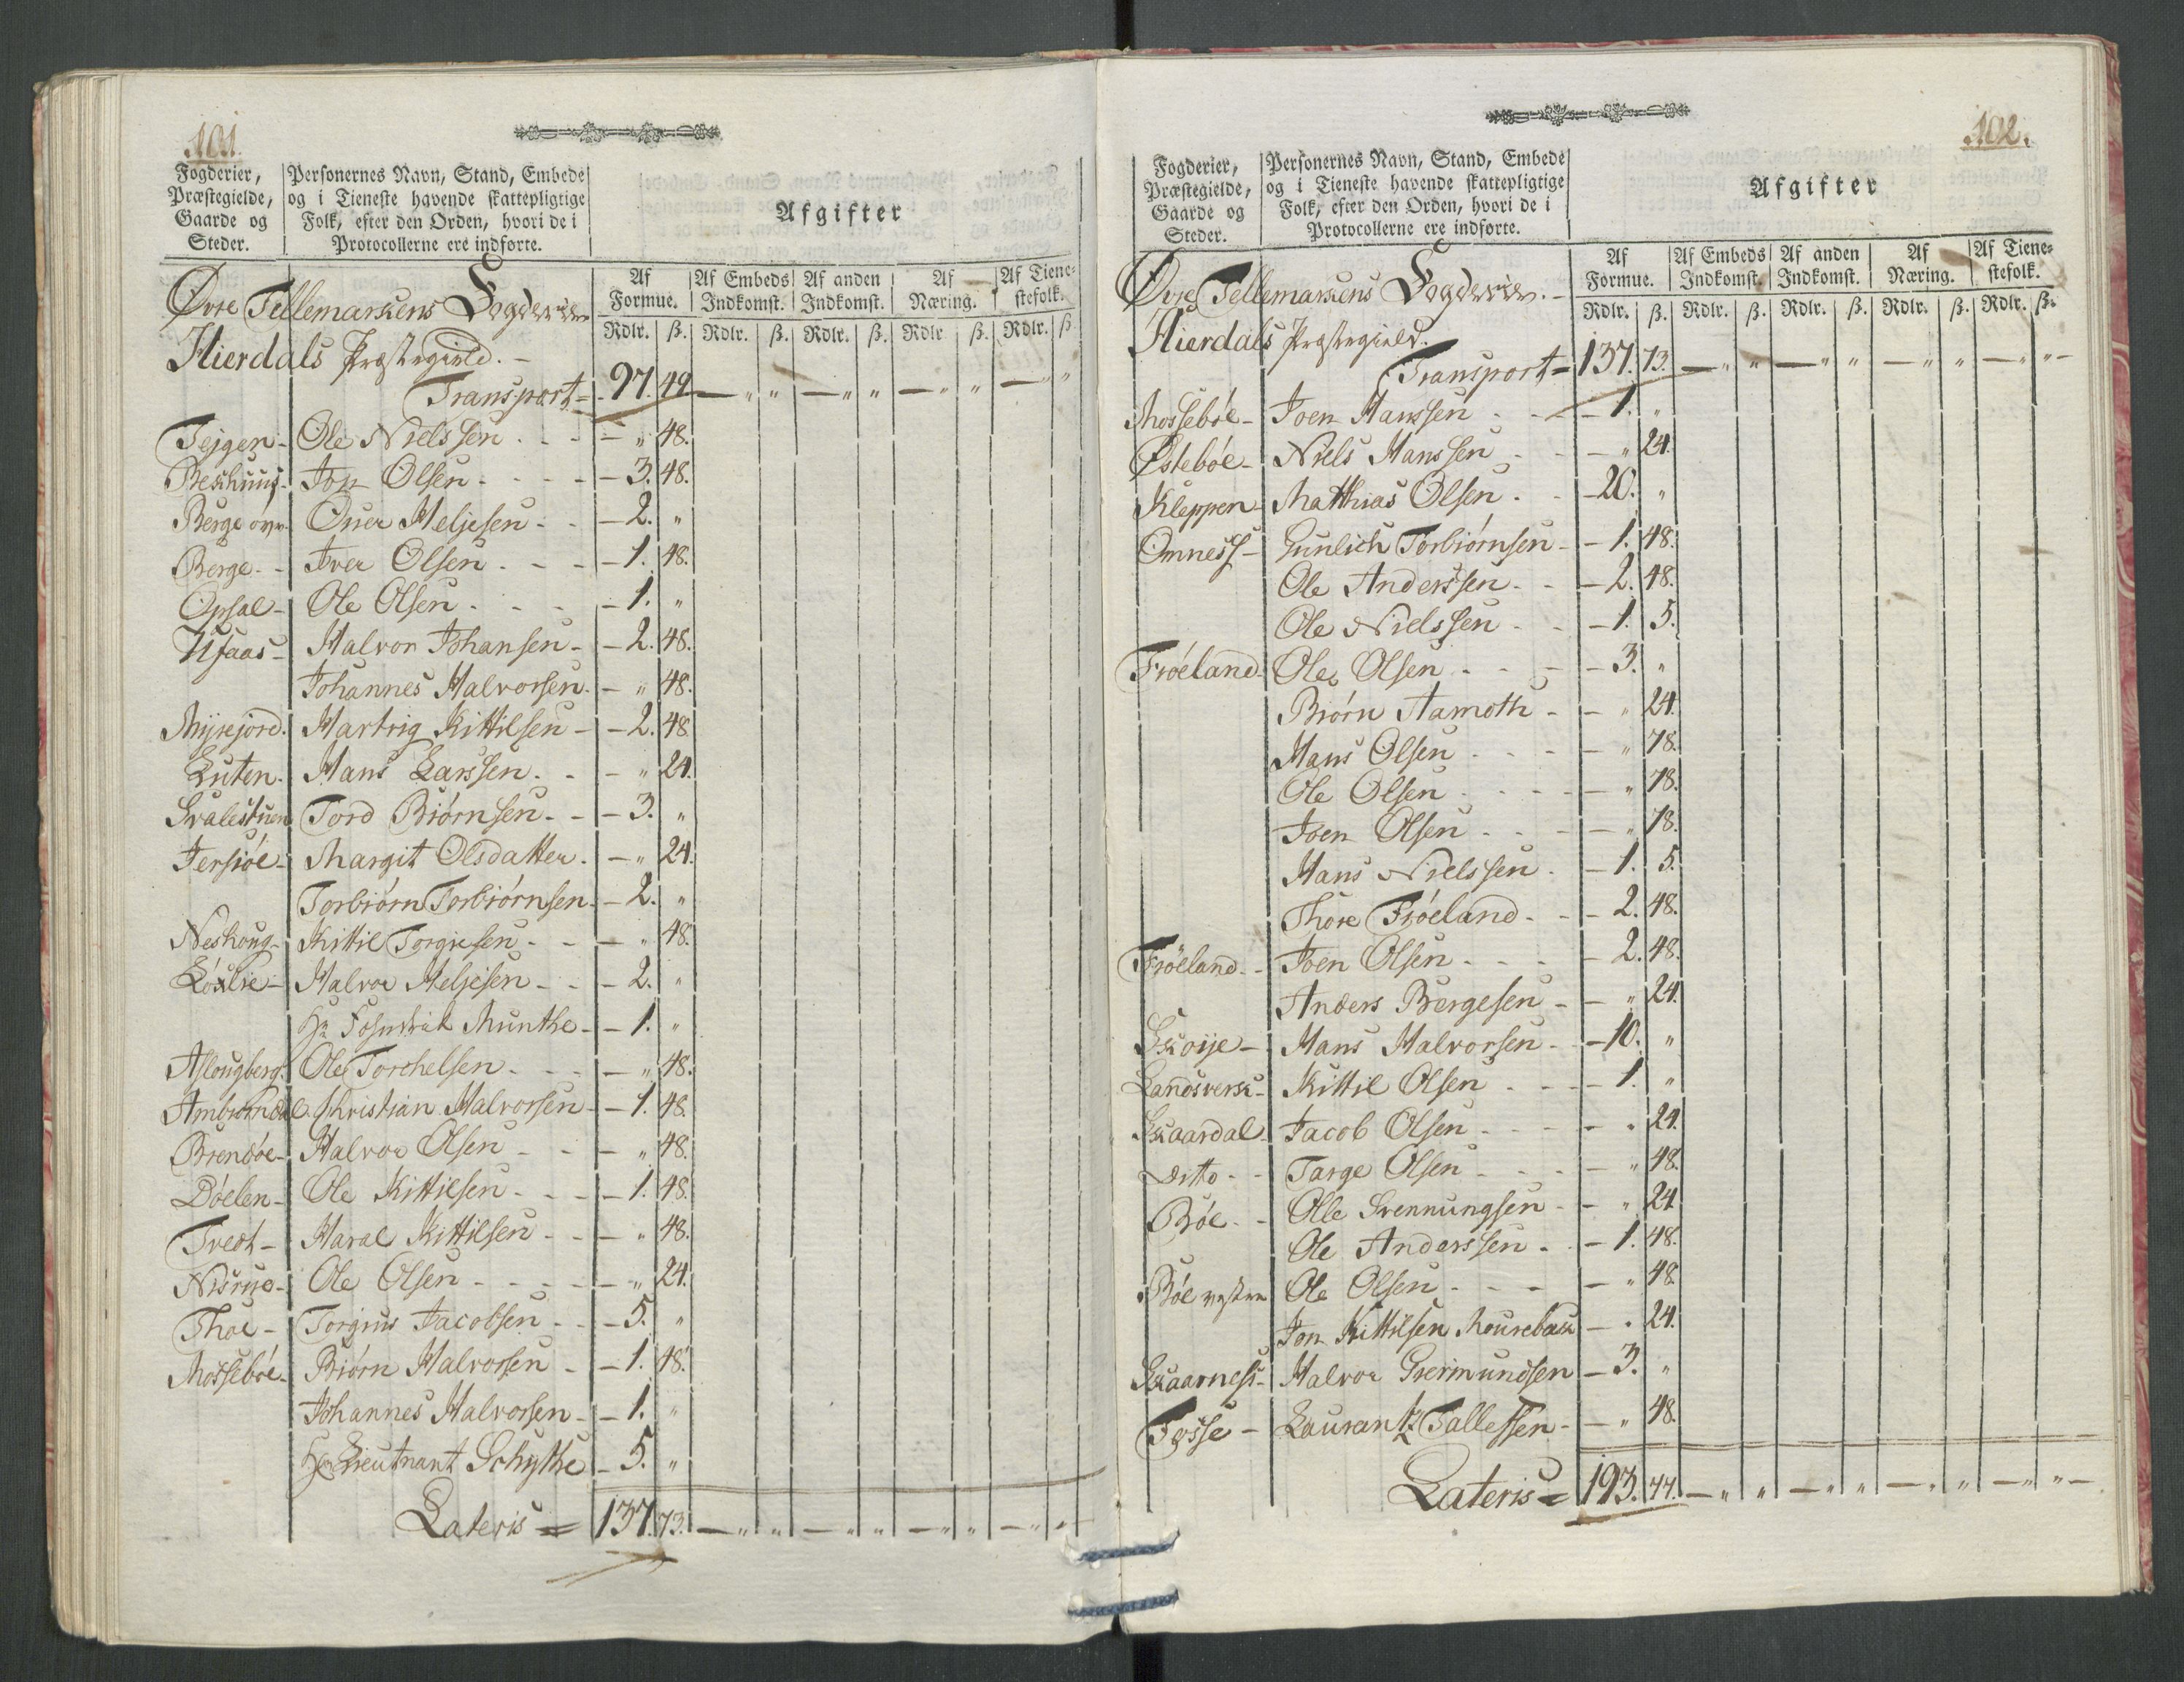 101.
Fogderier, Præstegielde, Gaarde og Steder.
Personernes Navn, Stand, Embede og i Tieneste havende skattepligtige Folk, efter den Orden, hvori de i Protocollerne ere indførte.
Afgifter
Af Formue. Af Embeds Indkomst. Af anden Indkomst. Af Næring. Af Tienestefolk.
Øvre Tellemarkens Fogderie
Rdlr. ß. Rdlr. ß. Rdlr. ß. Rdlr ß. Rdlr. ß
Hierdals Præstegield. -
Transport = 97. 49. — " " — " " — " " — " "
Tejgen - Ole Nielssen - - - — " 48.
Beskhuus - Jon Olsen - - - - 3. 48.
Berge øvr. Over Heljesen - - - 2. "
Berge - - Iver Olsen - - - 1. 48.
Opsal - Ole Olsen - - - - 1. "
Ufaas - Halvor Johansen - - 2. 48.
Johannes Halvorsen. - " 48.
Myrejord. Hartvig Kittilsen - - 2. 48
Luten. Hans Larssen - - - " 24.
Svalestuen Tord Biørnsen - - - 3. "
Jersiøe - Margit Olsdatter. — " 24.
Torbiørn Torbiørnsen - 2. "
Neshoug - Kittil Torgiesen - - — " 48.
Løxlie - Halvor Heljesen - - - 2. "
Hr Munthe - - 1. "
Aslougberg. Ole Torchelsen - - - — " 48.
Ambiorndal Christian Halvorsen - - 1. 48.
Brendøe - Halvor Olsen - - - " 48.
Døelen - Ole Kittilsen - - - 1. 48.
Tvedt - Haral Kittilsen - - - " 48.
Nisrue - Ole Olsen - - - - - " 24.
Thoe - Torgius Jacobsen - - - 5. "
Mossebøe - Biørn Halvorsen - - 1. 48.
Johannes Halvorsen - - 1. "
Hr Lieutnant Schythe - 5. "
Lateris = 137. 73. — " " — " " — " " — " "
102.
Fogderier, Præstegielde, Gaarde og Steder.
Personernes Navn, Stand, Embede og i Tieneste havende skattepligtige Folk, efter den Orden, hvori de i Protocollerne ere indførte.
Afgifter
Af Formue. Af Embeds Indkomst. Af anden Indkomst. Af Næring. Af Tienestefolk.
Øvre Tellemarkens Fogderie. -
Rdlr. ß. Rdlr. ß. Rdlr. ß. Rdlr. ß. Rdlr. ß.
Hierdals Præstegield.
Transport = 137. 73. — " " — " " — " " — " " -
Mossebøe - Joen Hanssen - - - 1. "
Østebøe - Niels Hanssen - - — " 24.
Kleppen - Matthias Olsen - - 20. "
Omness - Gunlich Torbiørnsen - - 1. 48.
Ole Anderssen - - - 2. 48.
Ole Nielssen - - - 1. 5.
Frøeland - Ole Olsen - - - - 3. "
Biørn Aamoth - - " 24.
Hans Olsen - - - - " 78.
Ole Olsen - - - - — " 78.
Joen Olsen - - - — " 78.
Hans Nielssen - - 1. 5.
Thore Frøeland - - - 2. 48.
Frøeland - - Joen Olsen - - - - 2. 48.
Anders Bergesen - — " 24.
Skoije - Hans Halvorsen - - 10. "
Landsverk - Kittil Olsen - - - - 1. "
Skaardal - Jacob Olsen - - - - " 24.
ditto - - Targe Olsen - - - — " 48.
Bøe - - Olle Svennungsen - - " 24
Ole Anderssen - - - 1. 48.
Bøe vestre Ole Olsen - - - - " 48
Jon Kittilsen Mourebak — " 24.
Skaarness - Halvor Giermundsen - 3. "
Fosse - Laurantz Tallefsen - — " 48.
Lateris = 193. 77. — " " — " " — " " — " " -